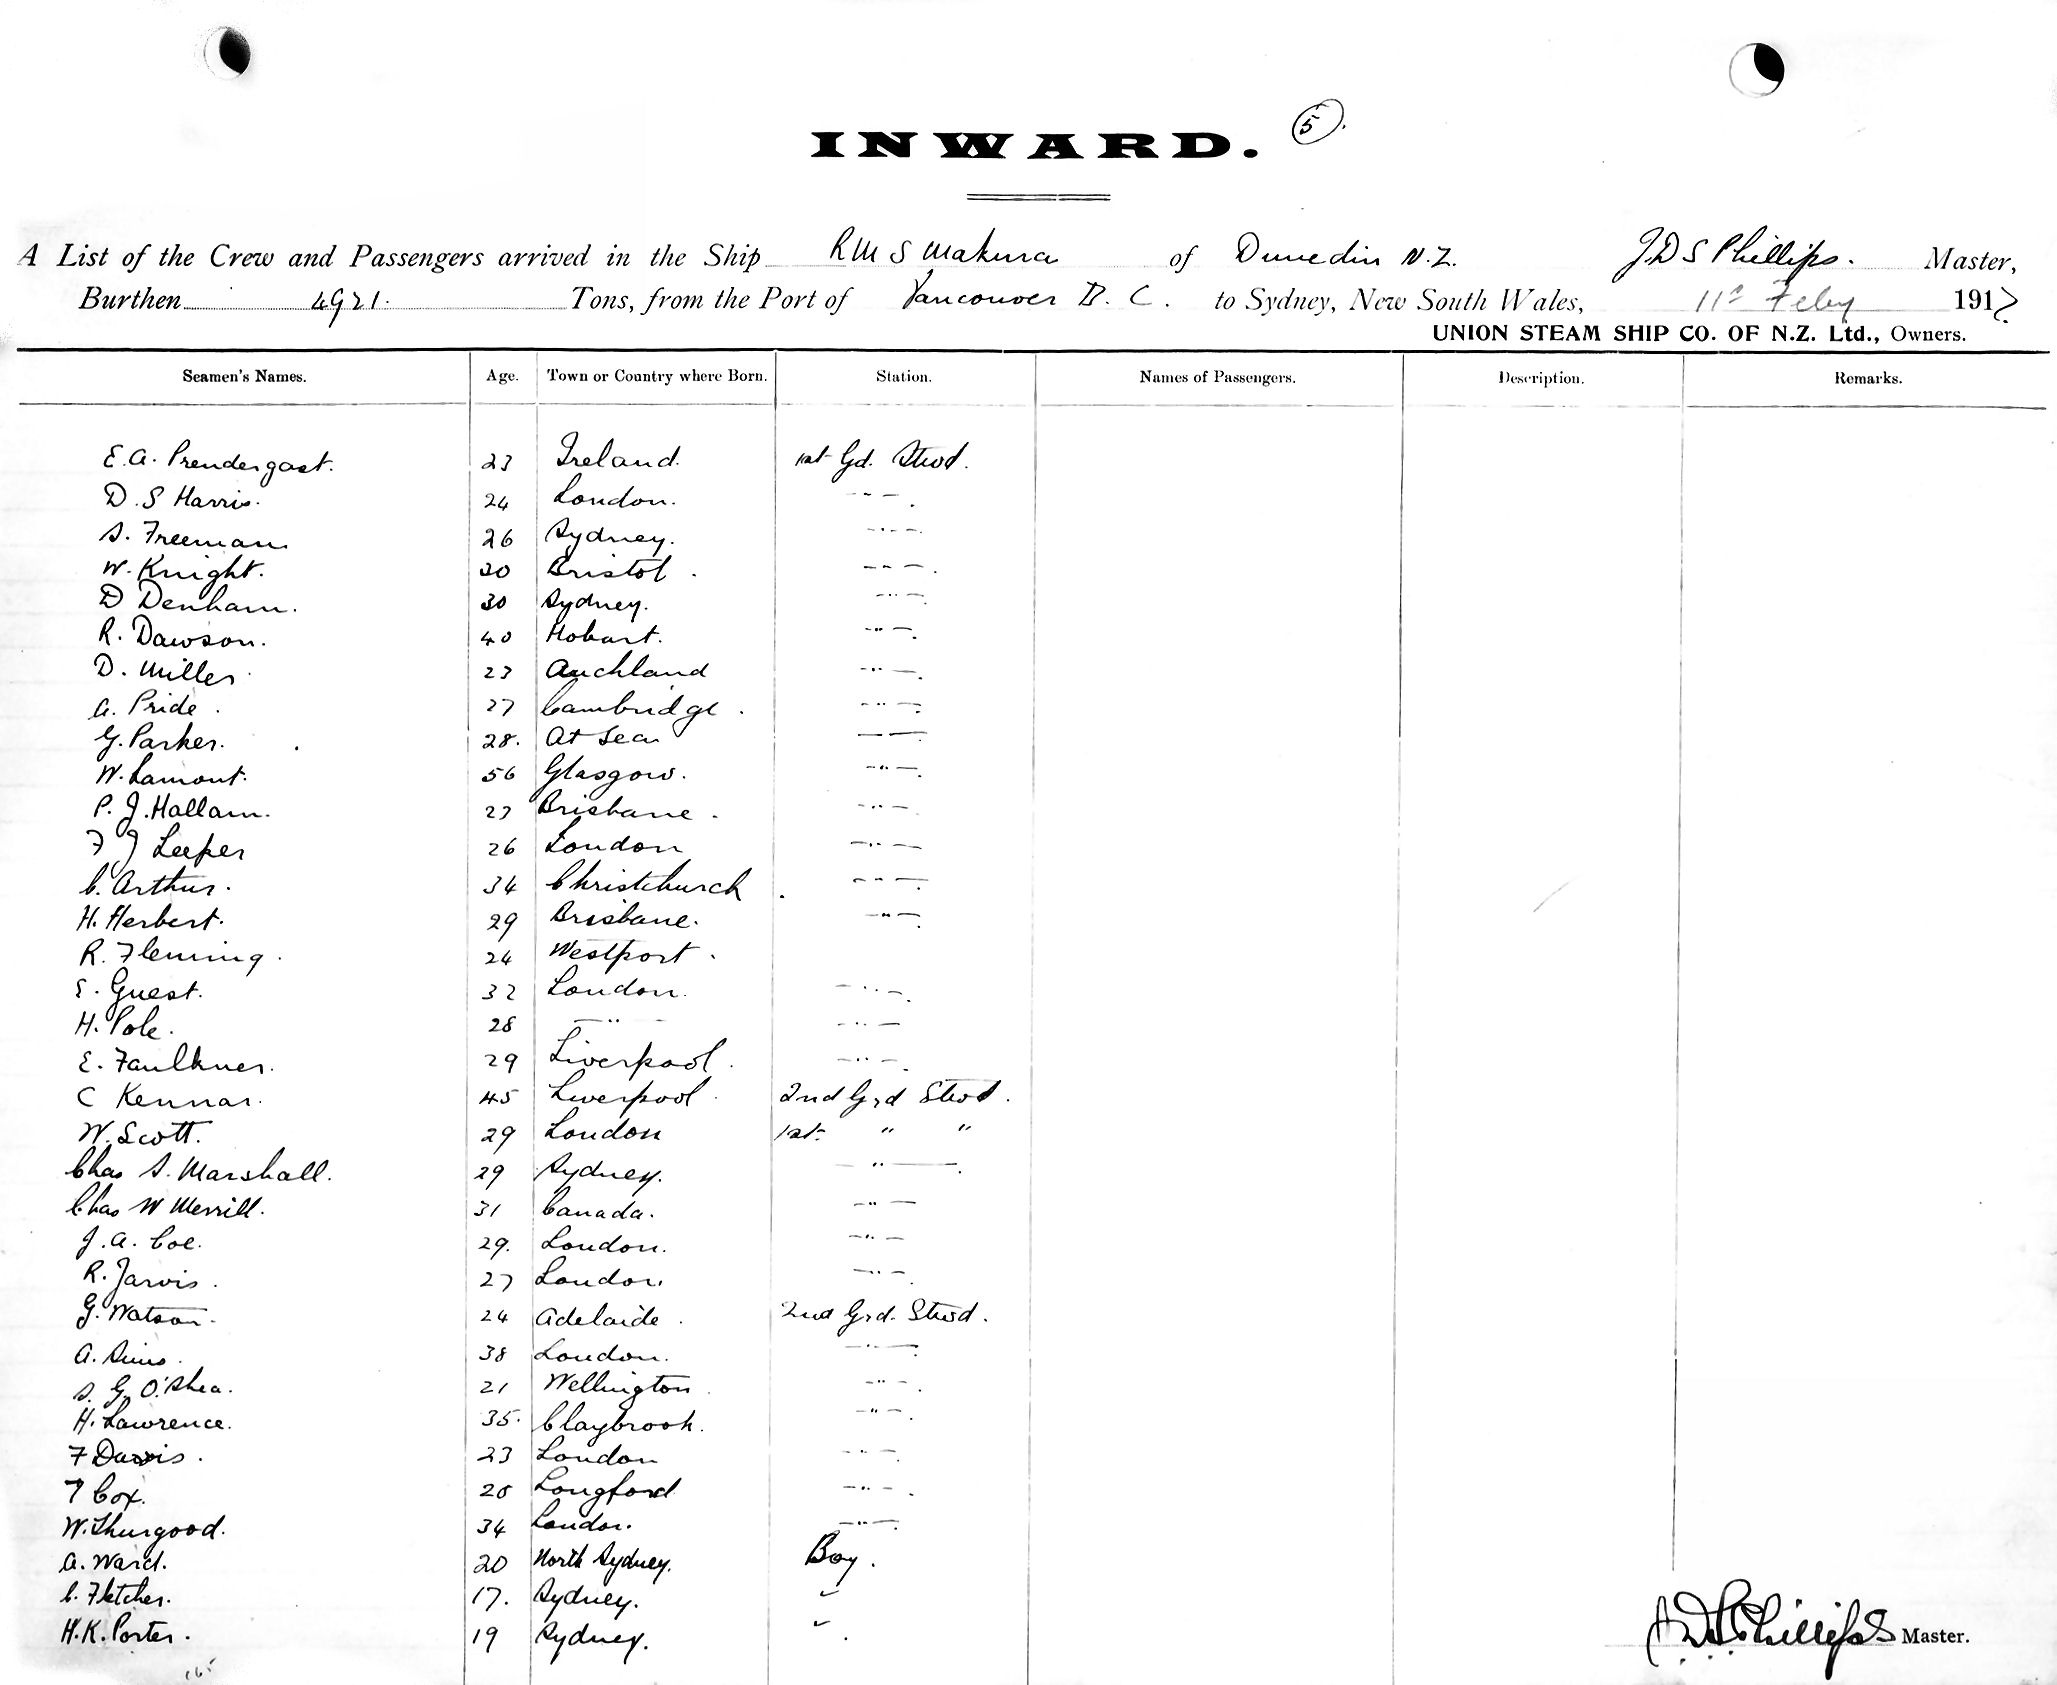 5
INWARD.
A List of the Crew and Passengers arrived in the Ship RMS Makura of Dunedin N.Z. JDS Phillips. Master,
Burthen 4921. Tons, from the Port of Vancouver B.C. to Sydney, New South Wales, 11th Feby 1917
UNION STEAM SHIP CO. OF N.Z. Ltd., Owners.
Seamen's Names. Age. Town or Country where Born. Station. Names of Passengers. Description. Remarks.
E.A. Prendergast. 23 Ireland. 1st Gd. Stwd.
D.S Harris. 24 London. — " —.
S. Freeman 26 Sydney. — " —.
W. Knight. 30 Bristol. — " —.
D Denham. 30 Sydney. — " —.
R. Dawson. 40 Hobart. — " —.
D. Miller 23 Auckland — " —.
A. Pride. 27 Cambridge. — " —.
G. Parker. 28. At Sea — " —.
W. Lamont. 56 Glasgow. — " —.
P.J. Hallam. 27 Brisbane. — " —.
F J Leeper 26 London — " —
C. Arthur. 34 Christchurch. — " —.
H. Herbert. 29 Brisbane. — " —.
R. Fleming. 24 Westport.
E. Guest. 32 London. — " —.
H. Pole. 28 — " — — " —
E. Faulkner. 29 Liverpool. — " —.
C Kennar. 45 Liverpool. 2nd Grd Stwd.
W. Scott. 29 London 1st " "
Chas S. Marshall. 29 Sydney. — " —.
Chas W Merrill. 31 Canada. — " —
J.A. Coe. 29. London. — " —
R. Jarvis. 27 London. — " —.
G. Watson. 24 Adelaide. 2nd Grd. Stwd.
A. Sims. 38 London. — " —
S.G. O'Shea. 21 Wellington. — " —.
H. Lawrence. 35. Claybrook. — " —.
F Davis. 23 London — " —.
T Cox. 20 Longford — " —.
W. Thurgood. 34 London. — " —.
A. Ward. 20 North Sydney. Boy.
C. Fletcher. 17. Sydney. "
H.K. Porter. 19 Sydney. "
JDS Phillips Master.